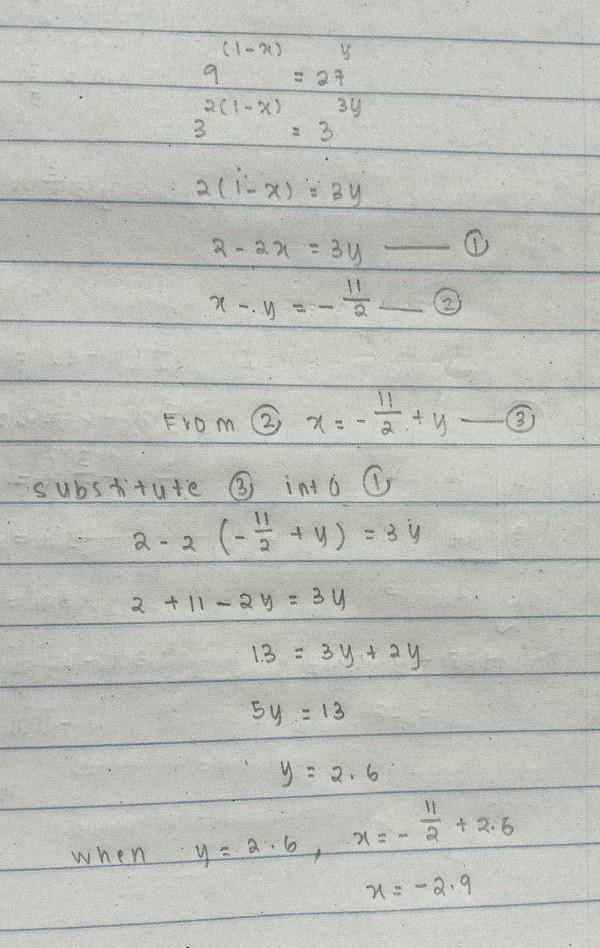 9^(1-x) = 27^y
3^2(1-x) = 3^3y
2(1-x) = 3y
2 - 2x = 3y —— ①
x - y = - 11/2 —— ②
From ② x = - 11/2 + y —— ③
substitute ③ into ①
2 - 2 (- 11/2 + y) = 3y
2 + 11 - 2y = 3y
13 = 3y + 2y
5y = 13
y = 2.6
when y = 2.6, x = - 11/2 + 2.6
x = -2.9